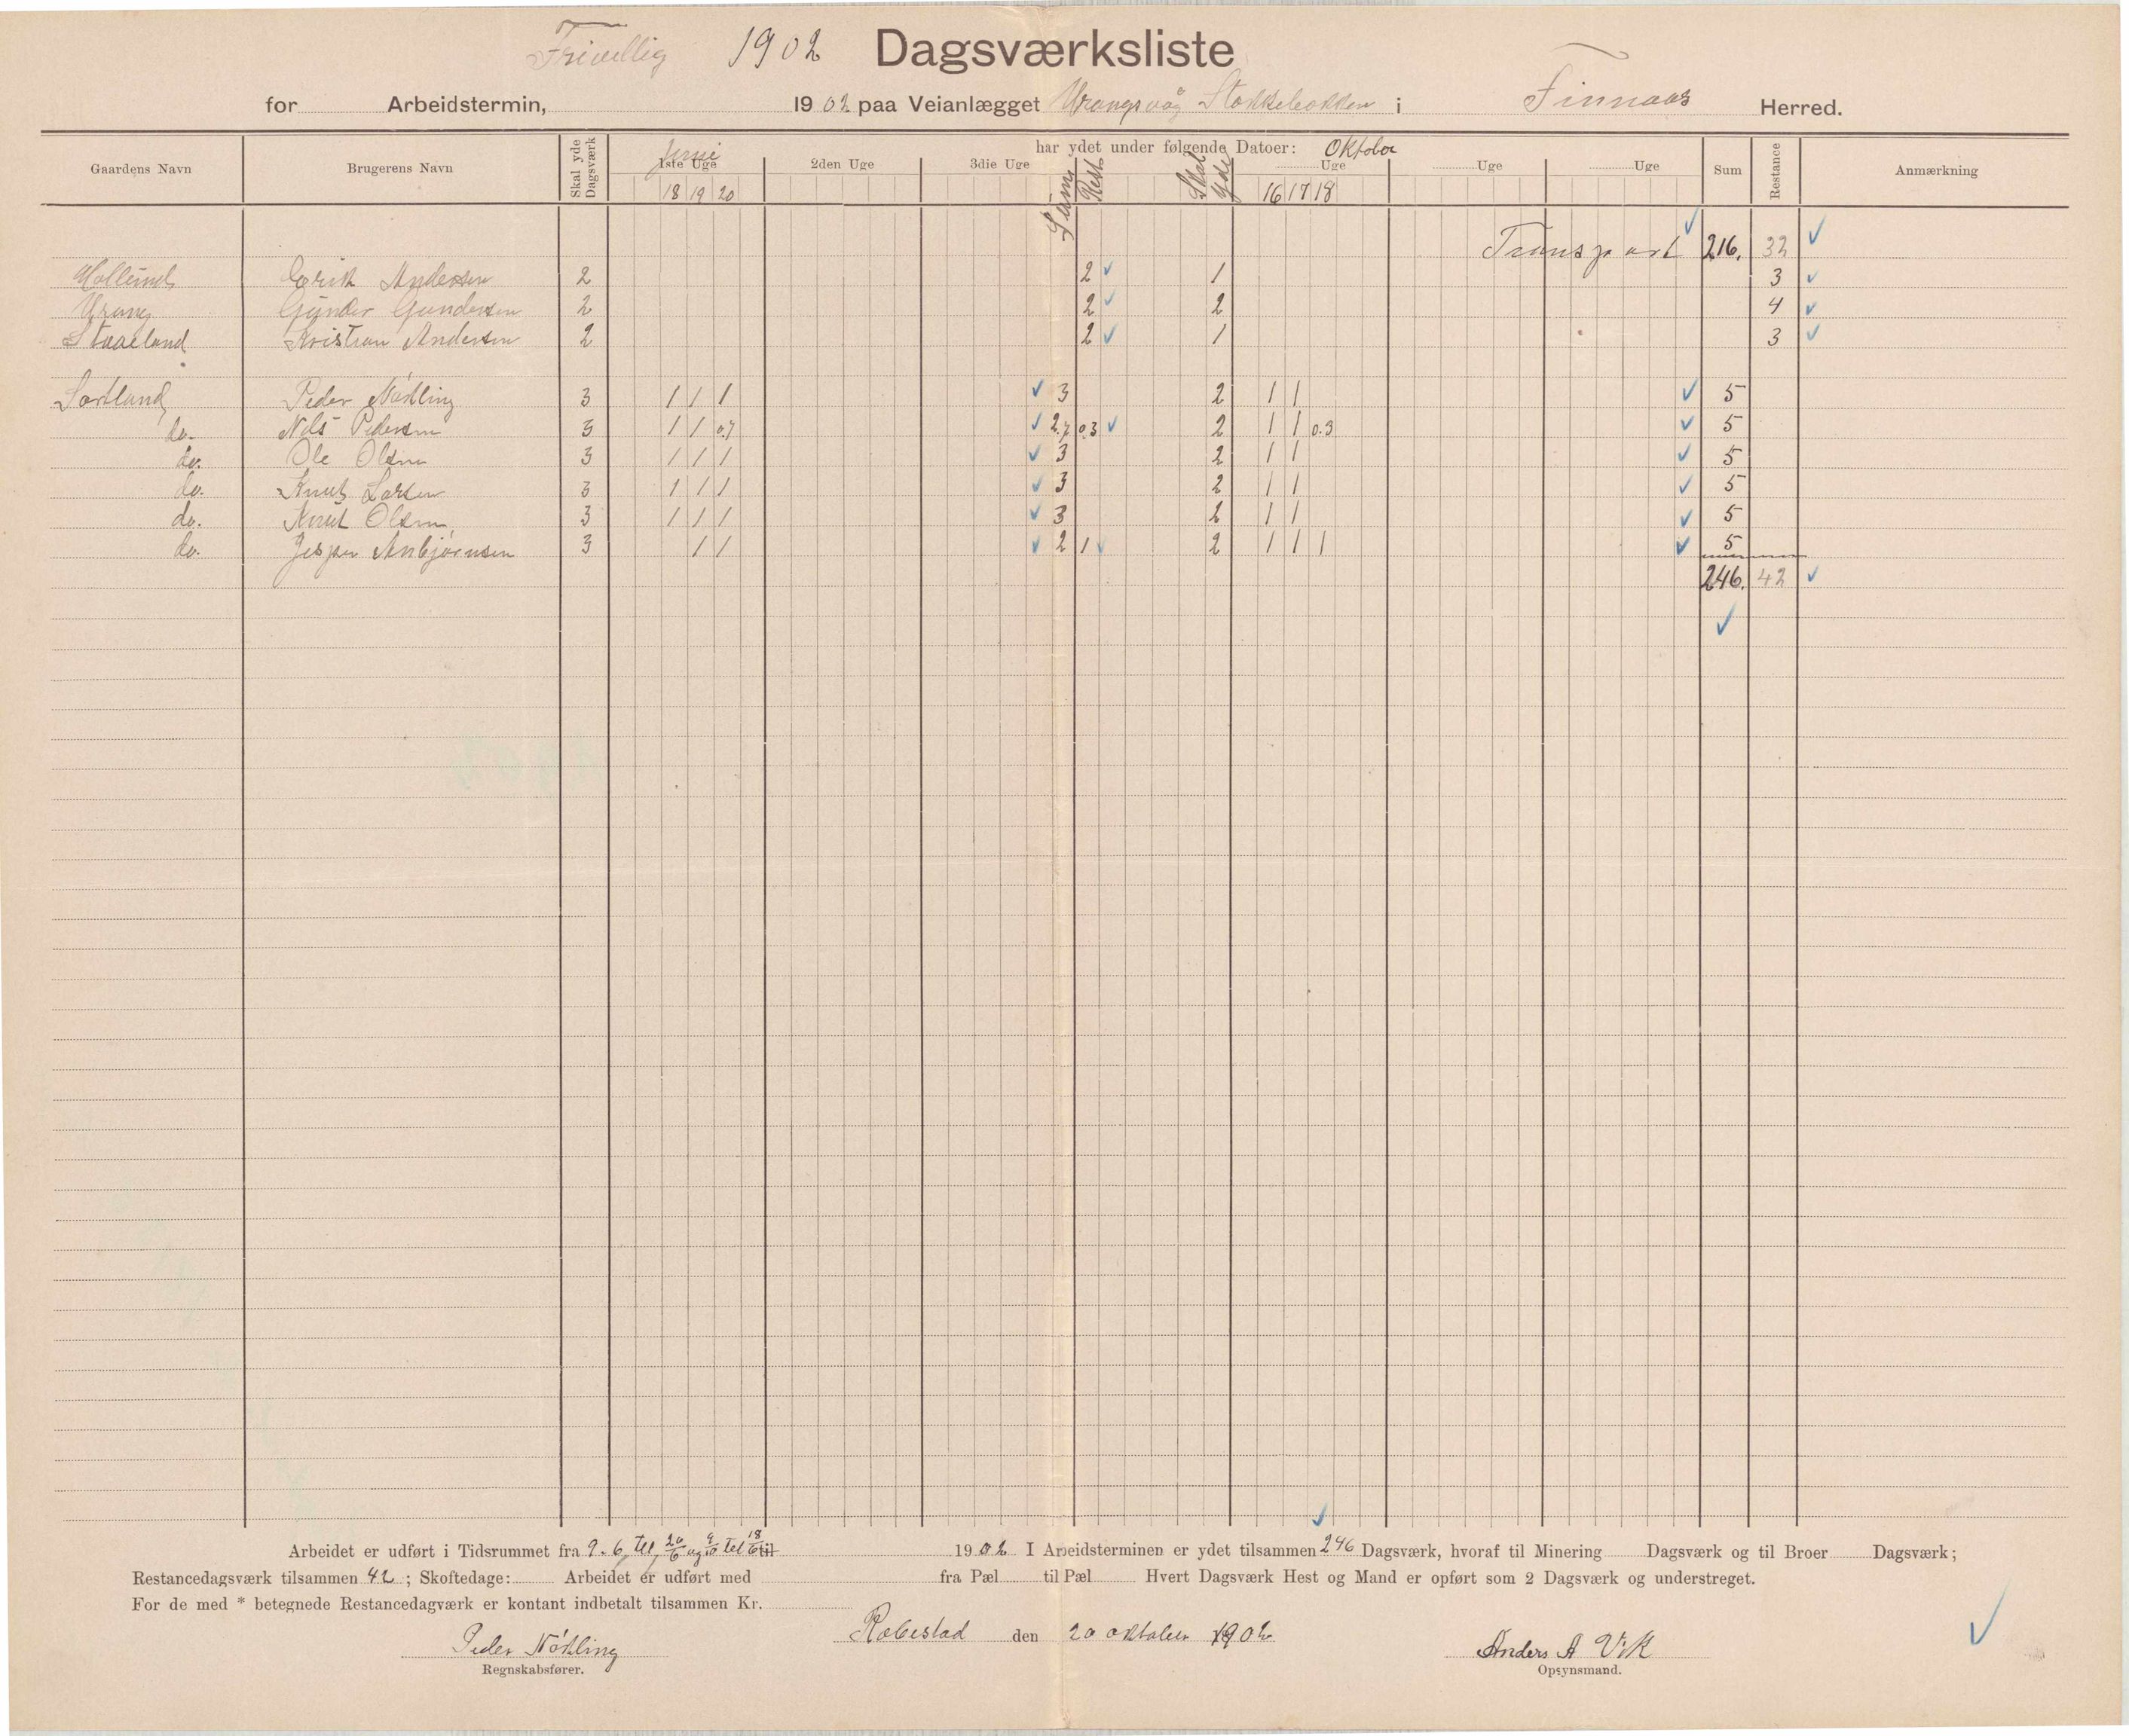 Frivillig 1902 Dagsværksliste
for Arbeidstermin, 1902 paa Veianlægget Vrangsvåg Stokkebakken i Finnaas Herred.
Gaardens Navn Brugerens Navn Skal yde Dagsværk har ydet under følgende Datoer: Oktober
Juni 1ste Uge 2den Uge 3die Uge Sum Rest Skal yde Uge Uge Uge Sum Restance Anmærkning
18 19 20 16 17 18
Transport 216. 32
Hollund Erik Andersen 2 2 1 3
Vrang Gunder Gundersen 2 2 2 4
Staaeland Kristian Andersen 2 2 1 3
Sortland Peder Nødling 3 1 1 1 3 2 1 1 5
do. Nils Pedersen 3 1 1 0.7 2.7 0.3 2 1 1 0.3 5
do. Ole Olsen 3 1 1 1 3 2 1 1 5
do. Knut Larsen 3 1 1 1 3 2 1 1 5
do. Knut Olsen 3 1 1 1 3 2 1 1 5
do. Jesper Anbjørnsen 3 1 1 2 1 2 1 1 1 5
246. 42
Arbeidet er udført i Tidsrummet fra 9-6 til 20/6 og 9/10 tel 18/6 til 1902 I Arbeidsterminen er ydet tilsammen 246 Dagsværk, hvoraf til Minering Dagsværk og til Broer Dagsværk;
Restancedagsværk tilsammen 42; Skoftedage: Arbeidet er udført med fra Pæl til Pæl Hvert Dagsværk Hest og Mand er opført som 2 Dagsværk og understreget.
For de med * betegnede Restancedagværk er kontant indbetalt tilsammen Kr.
Peder Nødling Robestad den 20 oktober 1902 Anders A Vik
Regnskabsfører. Opsynsmand.